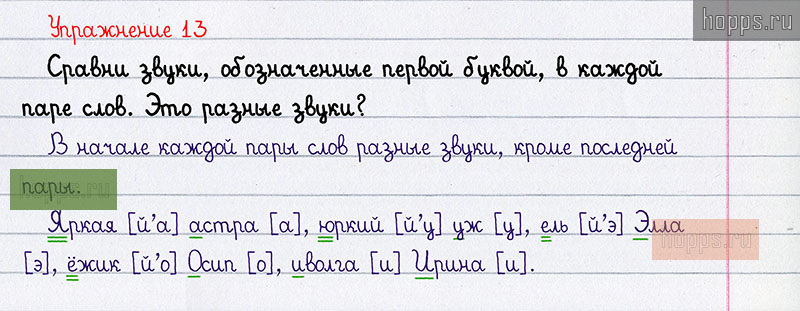 hopps.ru
Упражнение 13
Сравни звуки, обозначенные первой буквой, в каждой
паре слов. Это разные звуки?
В начале каждой пары слов разные звуки, кроме последней
пары.
hopps.ru
Яркая [й’а] астра [а], юркий [й’у] уж [у], ель [й’э] Элла
hopps.ru
[э], ёжик [й’о] Осип [о], иволга [и] Ирина [и].